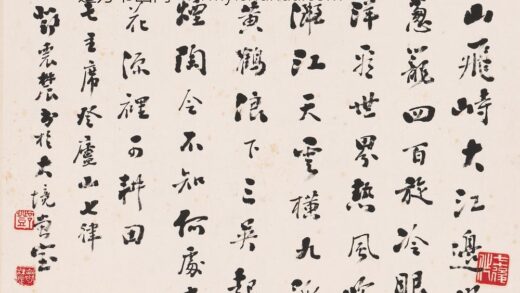 山飛峙大江邊
蔥蘢四百旋冷眼
洋看世界熱風
灑江天雲橫九派
黃鶴浪下三吳起
煙陶令不知何處去
花源裡可耕田
主席登廬山七律
震書於大境